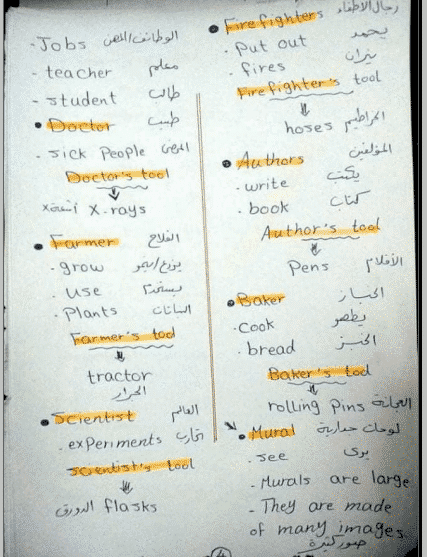 - Jobs الوظائف/المهن
- teacher معلم
- student طالب
• Doctor طبيب
. sick People المرضى
Doctor's tool
X-rays أشعة x
• Farmer الفلاح
. grow يزرع/ينمو
. use يستخدم
. Plants النباتات
Farmer's tool
tractor
الجرار
• Scientist العالم
. experiments تجارب
scientist's tool
flasks الدورق
رجال الاطفاء
• Fire fighters
. Put out يخمد
. fires نيران
Fire fighter's tool
hoses الخراطيم
• Authors المؤلفين
. write يكتب
. book كتاب
Author's tool
Pens الأقلام
• Baker الخباز
. cook يطهو
. bread الخبز
Baker's tool
rolling Pins
• Mural لوحات جدارية
. see يرى
- Murals are large
- They are made
of many images
صور كثيرة